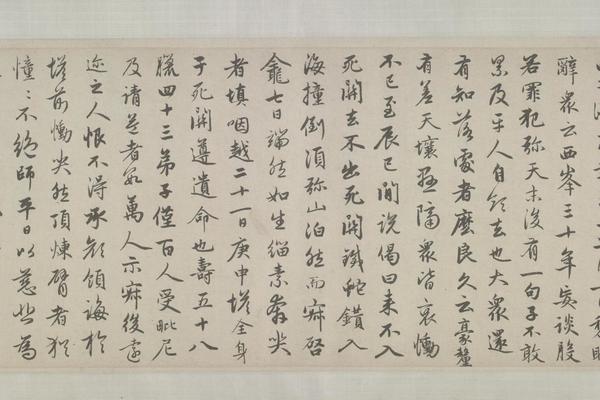 辭眾云西峯三十年妄談般
若罪犯弥天末後有一句子不敢
累及平人自領去也大眾還
有知落處者麼良久云豪釐
有差天壤懸隔眾皆哀慟
不已至辰巳間說偈曰來不入
死關去不出死關鐵蛇鑽入
海撞倒須弥山泊然而寂啓
龕七日端然如生緇素奔哭
者填咽越二十一日庚申塔全身
于死關遵遺命也壽五十八
臘四十三弟子僅百人受毗尼
及請益者數萬人示寂後遠
迩之人恨不得承顏領誨於
塔前慟哭然頂煉臂者猶
憧〻不絕師平日以慈悲為